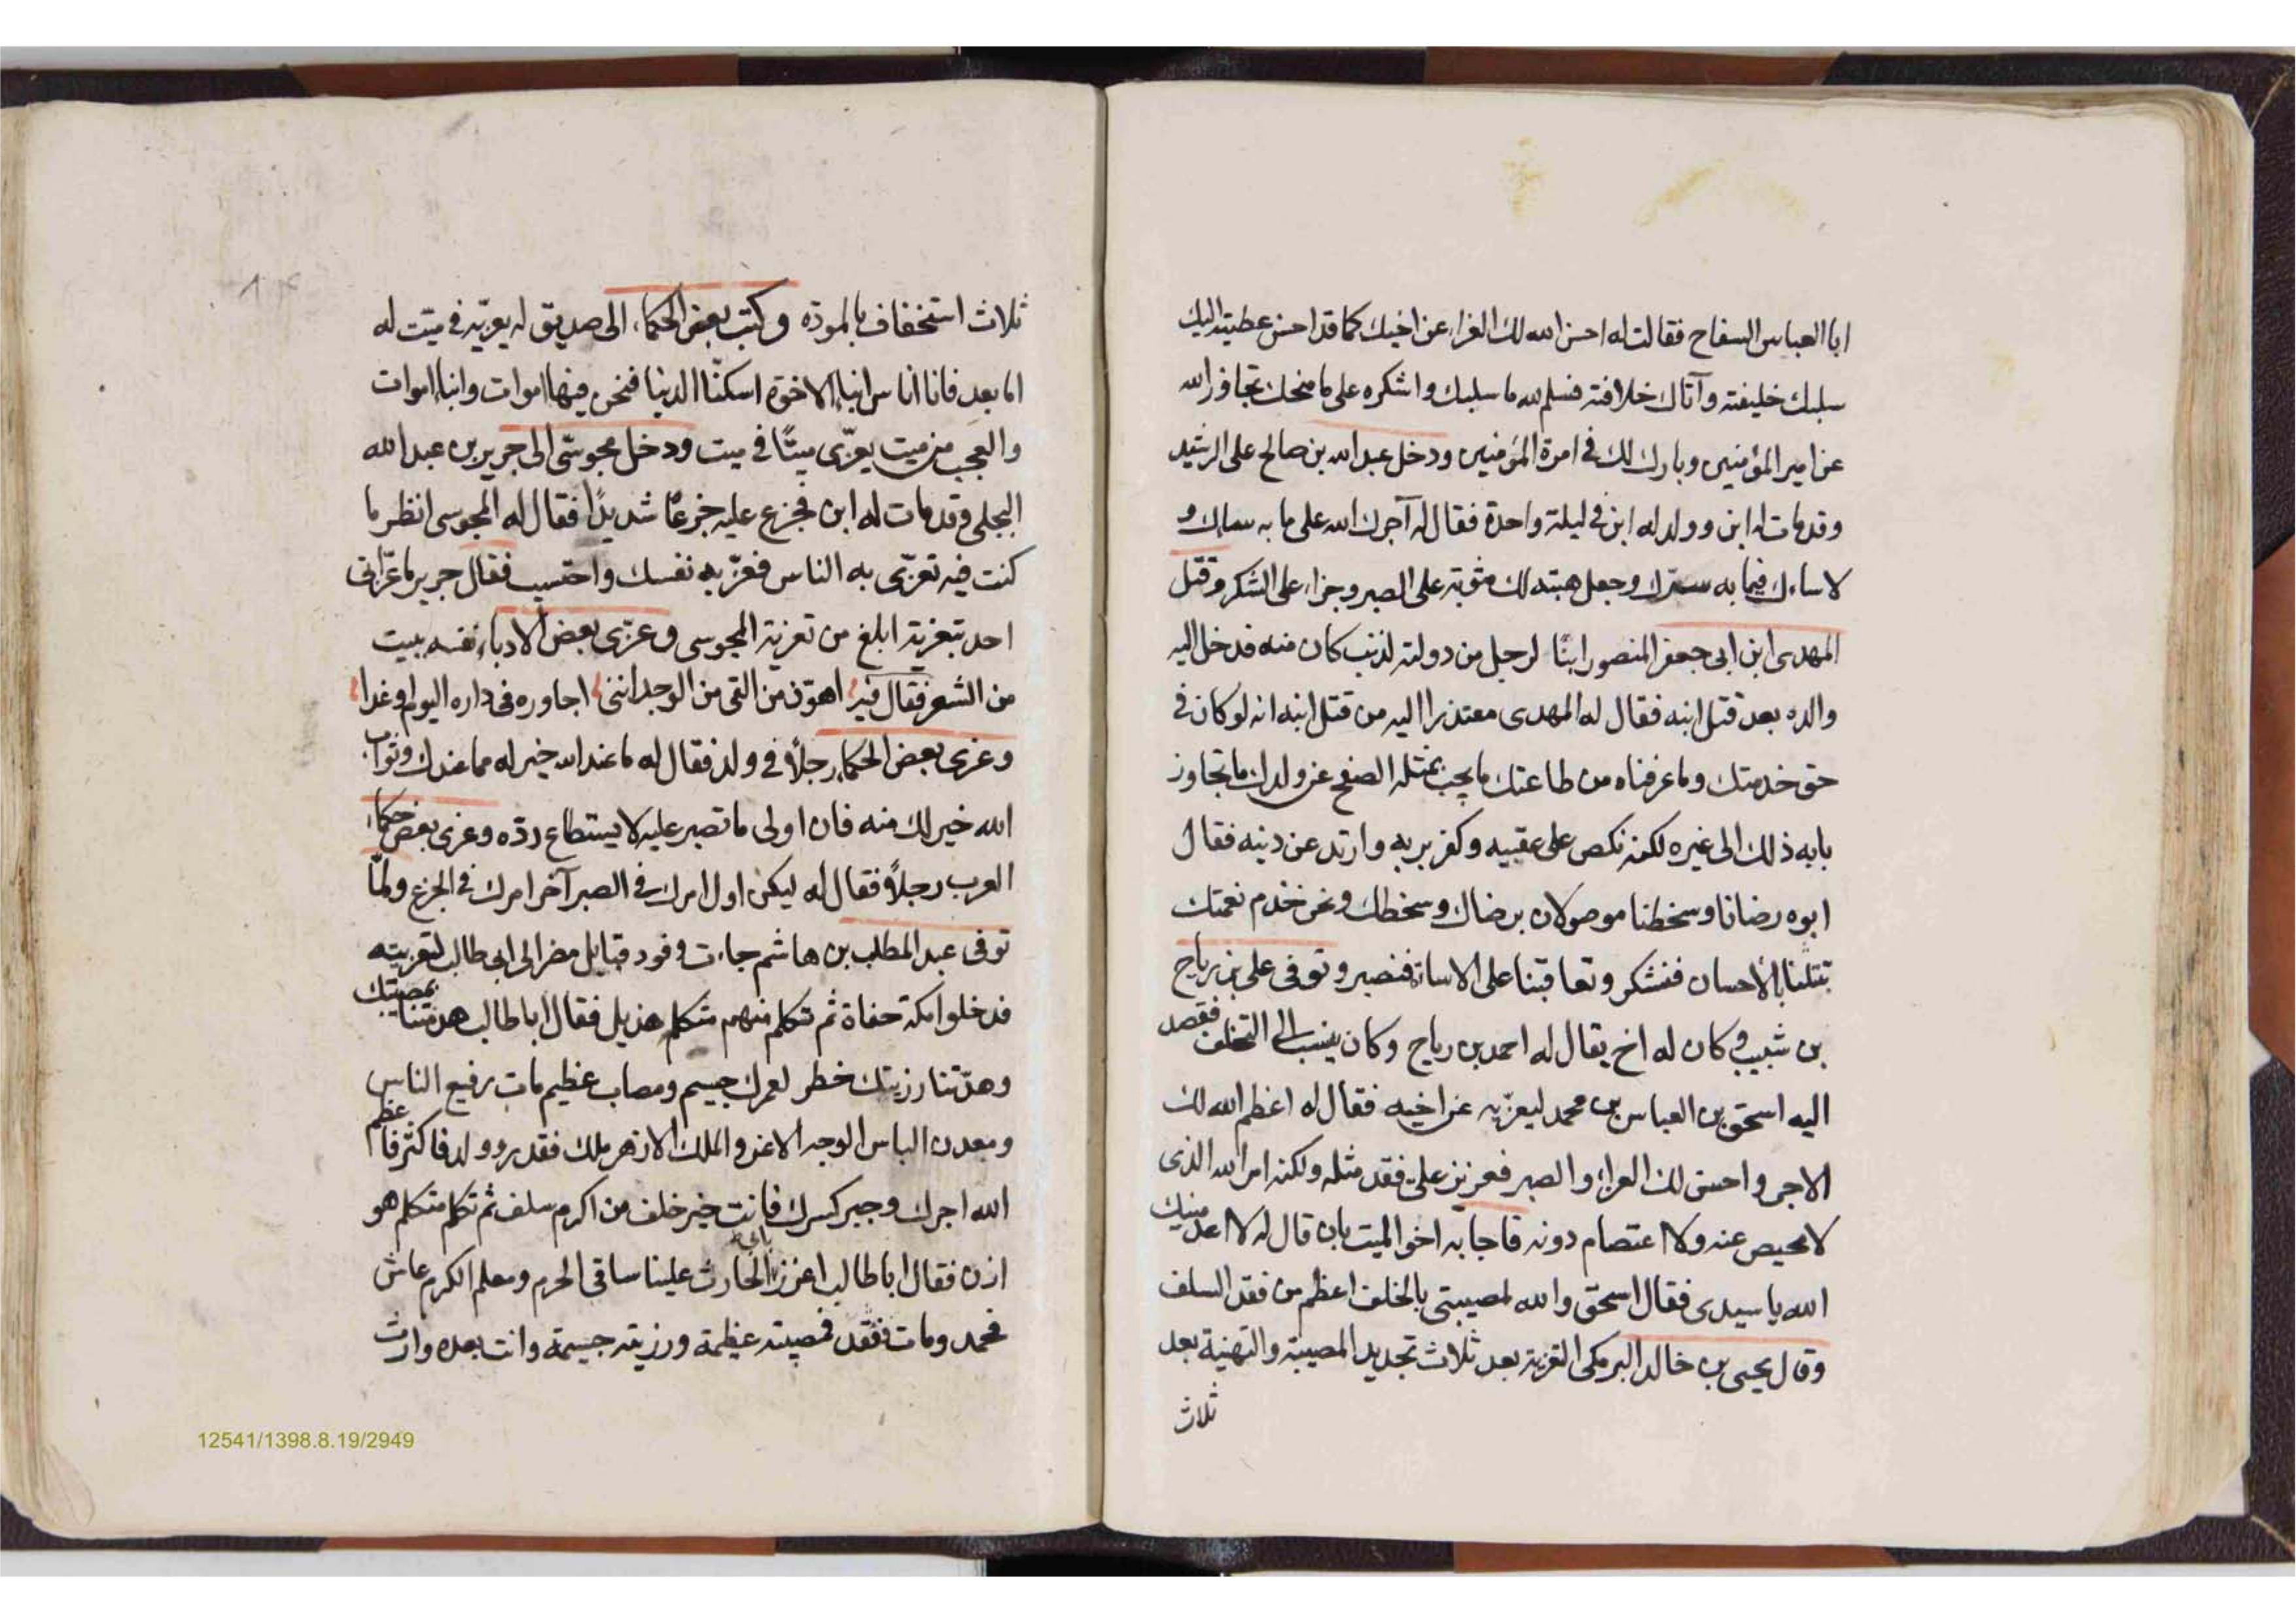 ابا العباس السفاح فقالت له احسن الله لك العزاء عن اخيك كما قد احسن عطيته اليك
سلبك خليفته وآتاك خلافته فسلم لله ما سلبك واشكره على ما منحك تجاوز الله
عن امير المؤمنين وبارك لك فى امرة المؤمنين ودخل عبد الله بن صالح على الرشيد
وقد مات له ابن وولد له ابن فى ليلة واحدة فقال له آجرك الله على ما به ساءك و
لا ساءك فيما به سرّك وجعل هبته لك مثوبة على الصبر وجزاء على الشكر وقتل
المهدى ابن ابى جعفر المنصور ابنًا لرجل من دولته لذنب كان منه فدخل اليه
والده بعد قتل ابنه فقال له المهدى معتذرا اليه من قتل ابنه انه لو كان فى
حق خدمتك وما عرفناه من طاعتك ما يجب بمثله الصفح عن ولدك ما تجاوز
بابه ذلك الى غيره لكنه نكص على عقبيه وكفر بربه وارتد عن دينه فقال
ابوه رضانا وسخطنا موصولان برضاك وسخطك ونحن خدم نعمتك
تبتلنا بالأحسان فنشكر وتعاقبنا على الاساءة فنصبر وتوفى على بن رياح
بن شبيب وكان له اخ يقال له احمد بن رياح وكان ينسب الى التخلف فقصد
اليه اسحق بن العباس بن محمد ليعزّيه عن اخيه فقال له اعظم الله لك
الاجر واحسن لك العزاء والصبر فعزيز علىّ فقد مثله ولكنه امر الله الذى
لا محيص عنه ولا اعتصام دونه فاجابه اخو الميت بان قال له لا اعدمنيك
الله يا سيدى فقال اسحق والله لمصيبتى بالخلف اعظم من فقد السلف
وقال يحيى بن خالد البرمكى التعزية بعد ثلاث تجديد المصيبة والتهنية بعد
ثلاث
ثلاث استخفاف بالمودّه وكتب بعض الحكماء الى صديق له يعزّيه فى ميّت له
اما بعد فانا اناس ابناء الاخرة اسكنّا الدنيا فنحن فيها اموات وابناء اموات
والعجب من ميت يعزّى ميتًا فى ميت ودخل مجوسّى الى جرير بن عبد الله
البجلى وقد مات له ابن فجزع عليه جزعًا شديدًا فقال له المجوسى انظر ما
كنت فيه تعزّى به الناس فعزّ به نفسك واحتسب فقال جرير ما عزّانى
احد بتعزية ابلغ من تعزية المجوسى وعزّى بعض الادباء نفسه ببيت
من الشعر فقال فيه اهوّن من التى من الوجد اننى اجاوره فى داره اليوم او غدا
وعزى بعض الحكماء رجلاً فى ولد فقال له ما عند الله خير له مما عندك وثواب
الله خير لك منه فان اولى ما تصبر عليه لا يستطاع ردّه وعزى بعض حكماء
العرب رجلاً فقال له ليكن اول امرك فى الصبر آخر امرك فى الجزع ولمّا
توفى عبد المطلب بن هاشم جاءت وفود قبايل مضر الى ابى طالب لتعزيته
فدخلوا مكة حفاة ثم تكلم منهم متكلم هذيل فقال ابا طالب هدتنا بمصيبتك
وهدّتنا رزيتك خطر لعمرك جسيم ومصاب عظيم مات رفيع الناس
ومعدن الباس الوجه الاغر والملك الازهر ملك فقدر وولد فاكثر فاعظم
الله اجرك وجبر كسرك فانت خير خلف من اكرم سلف ثم تكلم متكلم هو
ازن فقال ابا طالب اعزز بابى الحارث علينا ساقى الحرم ومعلم الكرم عاش
فحمد ومات ففقد فمصيبته عظيمة ورزيته جسيمة وانت بعده وارث
12541/1398.8.19/2949